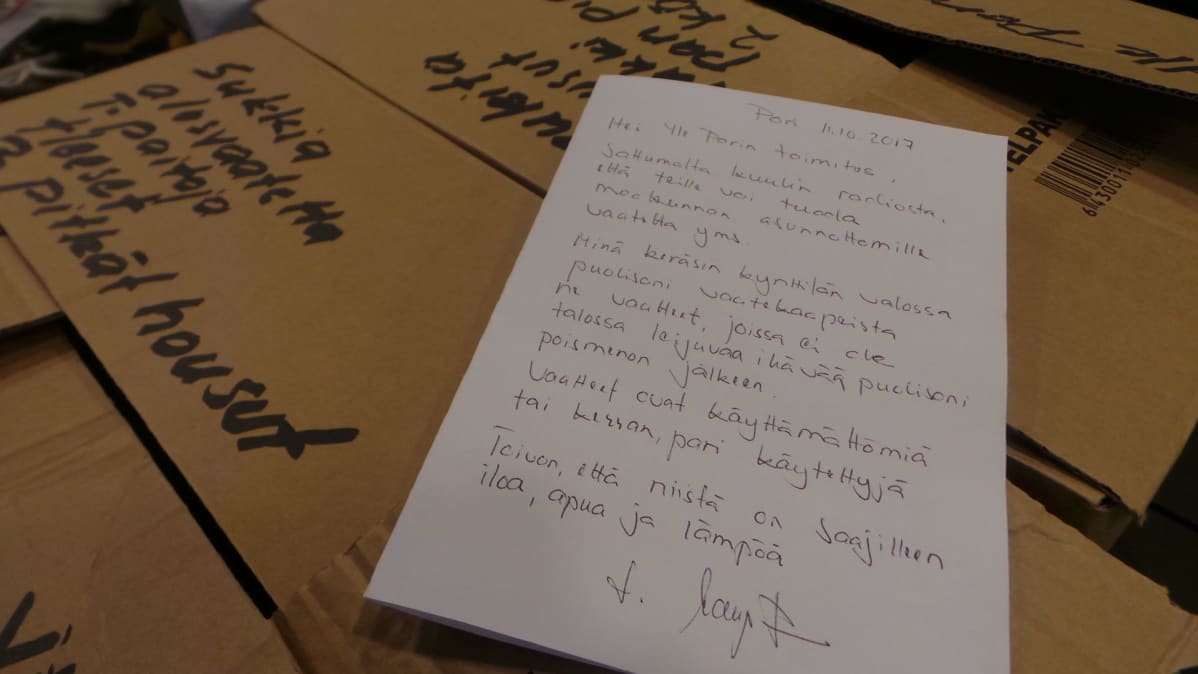 Sukkia
alusvaatetta
T-paitoja
2 pitkät housut
Pori 11.10.2017
Hei Yle Porin toimitus,
Sattumalta kuulin radiosta,
että teille voi tuoda
maakunnan asunnottomille
vaatetta yms.
Minä keräsin kynttilän valossa
puolisoni vaatekaapeista
ne vaatteet, joissa ei ole
talossa leijuvaa ikävää puolisoni
poismenon jälkeen.
Vaatteet ovat käyttämättömiä
tai kerran, pari käytettyjä
Toivon, että niistä on saajilleen
iloa, apua ja lämpöä